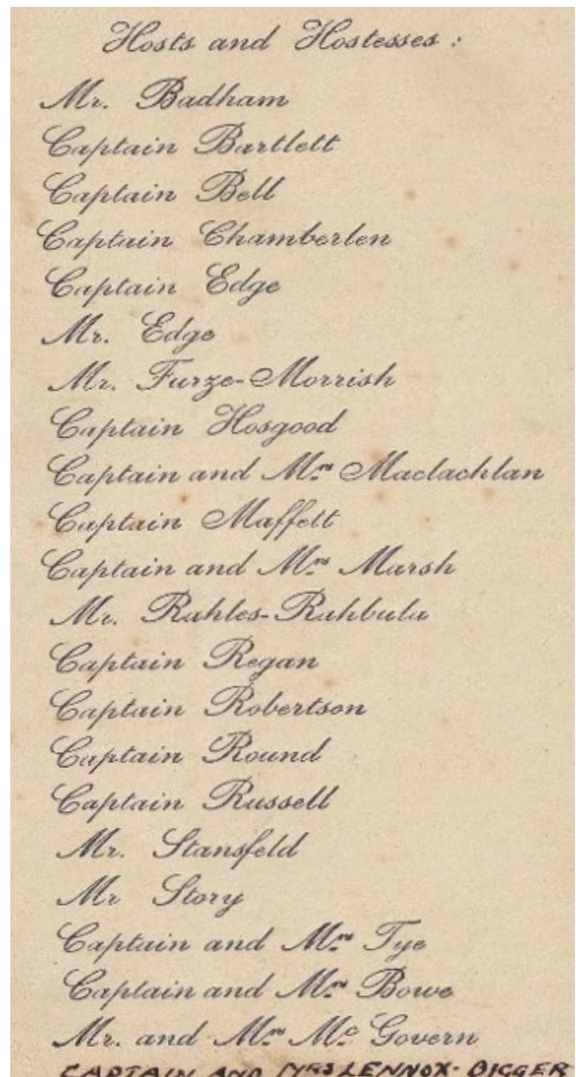 Hosts and Hostesses :
Mr. Badham
Captain Bartlett
Captain Bell
Captain Chamberlen
Captain Edge
Mr. Edge
Mr. Furze-Morrish
Captain Hosgood
Captain and Mrs Maclachlan
Captain Maffett
Captain and Mrs Marsh
Mr. Rahles-Rahbula
Captain Regan
Captain Robertson
Captain Round
Captain Russell
Mr. Stansfeld
Mr Story
Captain and Mrs Tye
Captain and Mrs Bowe
Mr. and Mrs Mc Govern
CAPTAIN AND MRS LENNOX-BIGGER